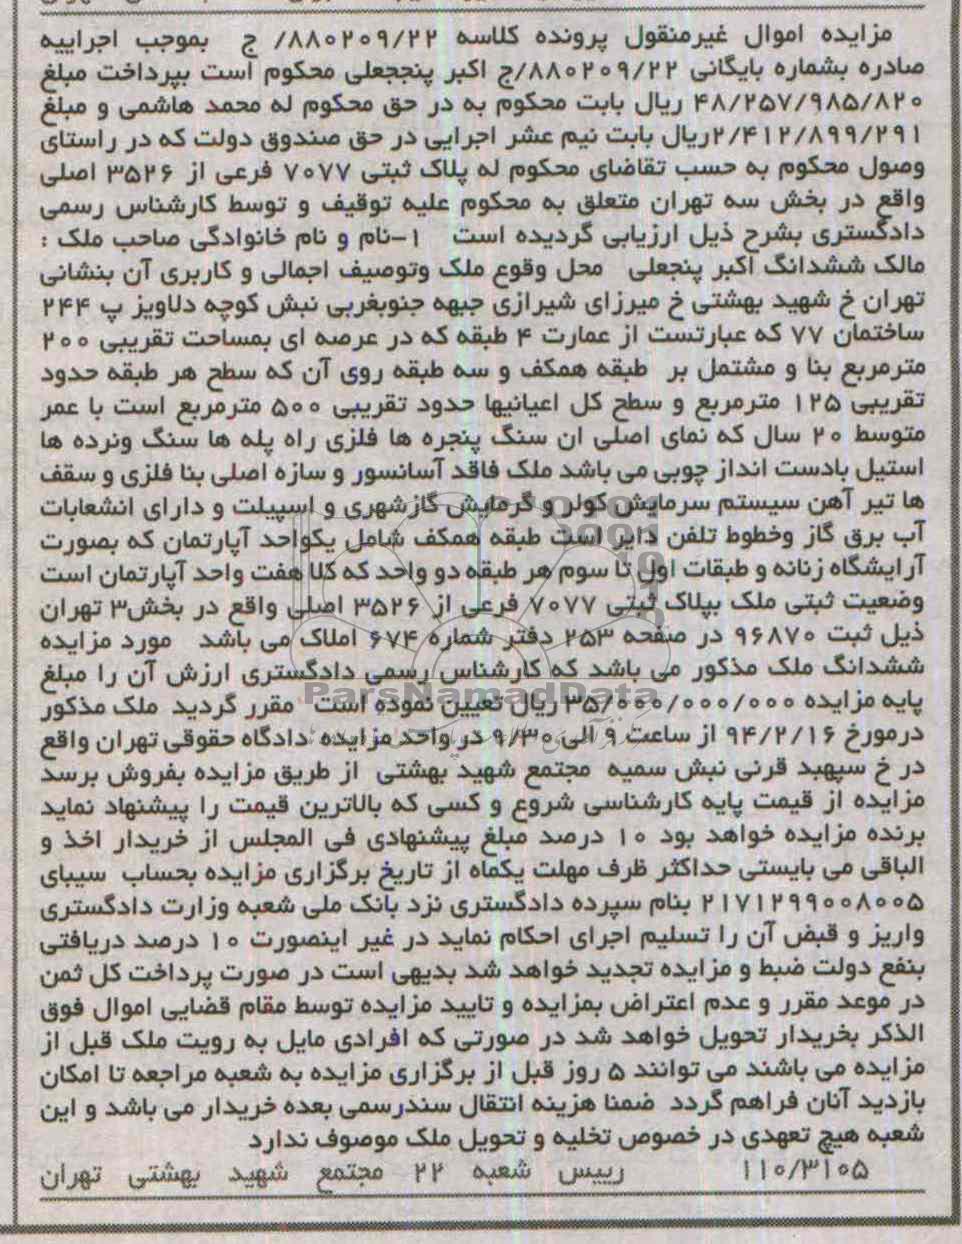 مزایده اموال غیرمنقول پرونده کلاسه ۸۸۰۲۰۹/۲۲/ ج بموجب اجراییه
صادره بشماره بایگانی ۸۸۰۲۰۹/۲۲/ج اکبر پنججعلی محکوم است بپرداخت مبلغ
۴۸/۲۵۷/۹۸۵/۸۲۰ ریال بابت محکوم به در حق محکوم له محمد هاشمی و مبلغ
۲/۴۱۲/۸۹۹/۲۹۱ریال بابت نیم عشر اجرایی در حق صندوق دولت که در راستای
وصول محکوم به حسب تقاضای محکوم له پلاک ثبتی ۷۰۷۷ فرعی از ۳۵۲۶ اصلی
واقع در بخش سه تهران متعلق به محکوم علیه توقیف و توسط کارشناس رسمی
دادگستری بشرح ذیل ارزیابی گردیده است ۱-نام و نام خانوادگی صاحب ملک :
مالک ششدانگ اکبر پنجعلی محل وقوع ملک وتوصیف اجمالی و کاربری آن بنشانی
تهران خ شهید بهشتی خ میرزای شیرازی جبهه جنوبغربی نبش کوچه دلاویز پ ۲۴۴
ساختمان ۷۷ که عبارتست از عمارت ۴ طبقه که در عرصه ای بمساحت تقریبی ۲۰۰
مترمربع بنا و مشتمل بر طبقه همکف و سه طبقه روی آن که سطح هر طبقه حدود
تقریبی ۱۲۵ مترمربع و سطح کل اعیانیها حدود تقریبی ۵۰۰ مترمربع است با عمر
متوسط ۲۰ سال که نمای اصلی ان سنگ پنجره ها فلزی راه پله ها سنگ ونرده ها
استیل بادست انداز چوبی می باشد ملک فاقد آسانسور و سازه اصلی بنا فلزی و سقف
ها تیر آهن سیستم سرمایش کولر و گرمایش گازشهری و اسپیلت و دارای انشعابات
آب برق گاز وخطوط تلفن دایر است طبقه همکف شامل یکواحد آپارتمان که بصورت
آرایشگاه زنانه و طبقات اول تا سوم هر طبقه دو واحد که کلا هفت واحد آپارتمان است
وضعیت ثبتی ملک بپلاک ثبتی ۷۰۷۷ فرعی از ۳۵۲۶ اصلی واقع در بخش۳ تهران
ذیل ثبت ۹۶۸۷۰ در صفحه ۲۵۳ دفتر شماره ۶۷۴ املاک می باشد مورد مزایده
ششدانگ ملک مذکور می باشد که کارشناس رسمی دادگستری ارزش آن را مبلغ
پایه مزایده ۳۵/۰۰۰/۰۰۰/۰۰۰ ریال تعیین نموده است مقرر گردید ملک مذکور
درمورخ ۹۴/۲/۱۶ از ساعت ۹ الی ۹/۳۰ در واحد مزایده دادگاه حقوقی تهران واقع
در خ سپهبد قرنی نبش سمیه مجتمع شهید بهشتی از طریق مزایده بفروش برسد
مزایده از قیمت پایه کارشناسی شروع و کسی که بالاترین قیمت را پیشنهاد نماید
برنده مزایده خواهد بود ۱۰ درصد مبلغ پیشنهادی فی المجلس از خریدار اخذ و
الباقی می بایستی حداکثر ظرف مهلت یکماه از تاریخ برگزاری مزایده بحساب سیبای
۲۱۷۱۲۹۹۰۰۸۰۰۵ بنام سپرده دادگستری نزد بانک ملی شعبه وزارت دادگستری
واریز و قبض آن را تسلیم اجرای احکام نماید در غیر اینصورت ۱۰ درصد دریافتی
بنفع دولت ضبط و مزایده تجدید خواهد شد بدیهی است در صورت پرداخت کل ثمن
در موعد مقرر و عدم اعتراض بمزایده و تایید مزایده توسط مقام قضایی اموال فوق
الذکر بخریدار تحویل خواهد شد در صورتی که افرادی مایل به رویت ملک قبل از
مزایده می باشند می توانند ۵ روز قبل از برگزاری مزایده به شعبه مراجعه تا امکان
بازدید آنان فراهم گردد ضمنا هزینه انتقال سندرسمی بعده خریدار می باشد و این
شعبه هیچ تعهدی در خصوص تخلیه و تحویل ملک موصوف ندارد
۱۱۰/۳۱۰۵ رییس شعبه ۲۲ مجتمع شهید بهشتی تهران
ParsNamadData